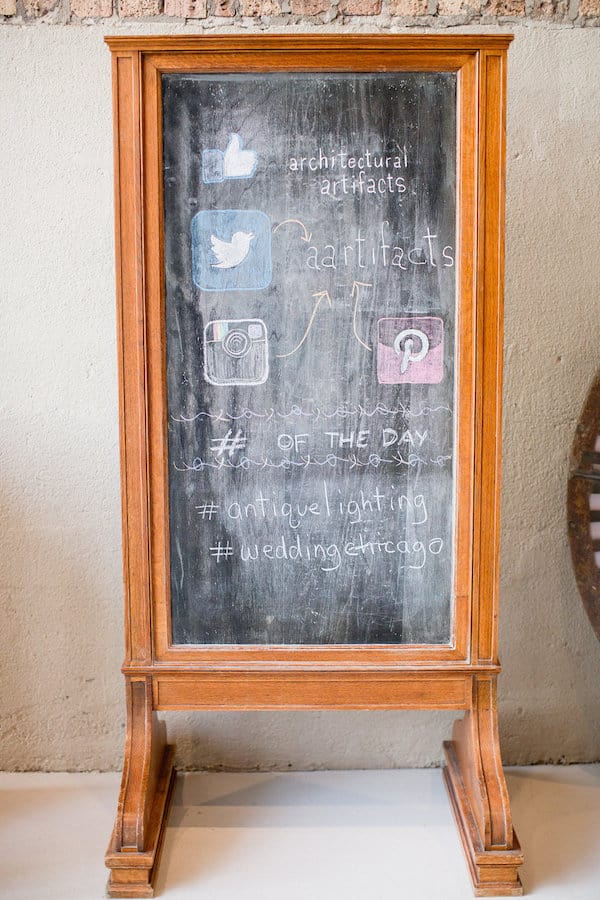 architectural
artifacts
aartifacts
# OF THE DAY
#antiquelighting
#weddingchicago